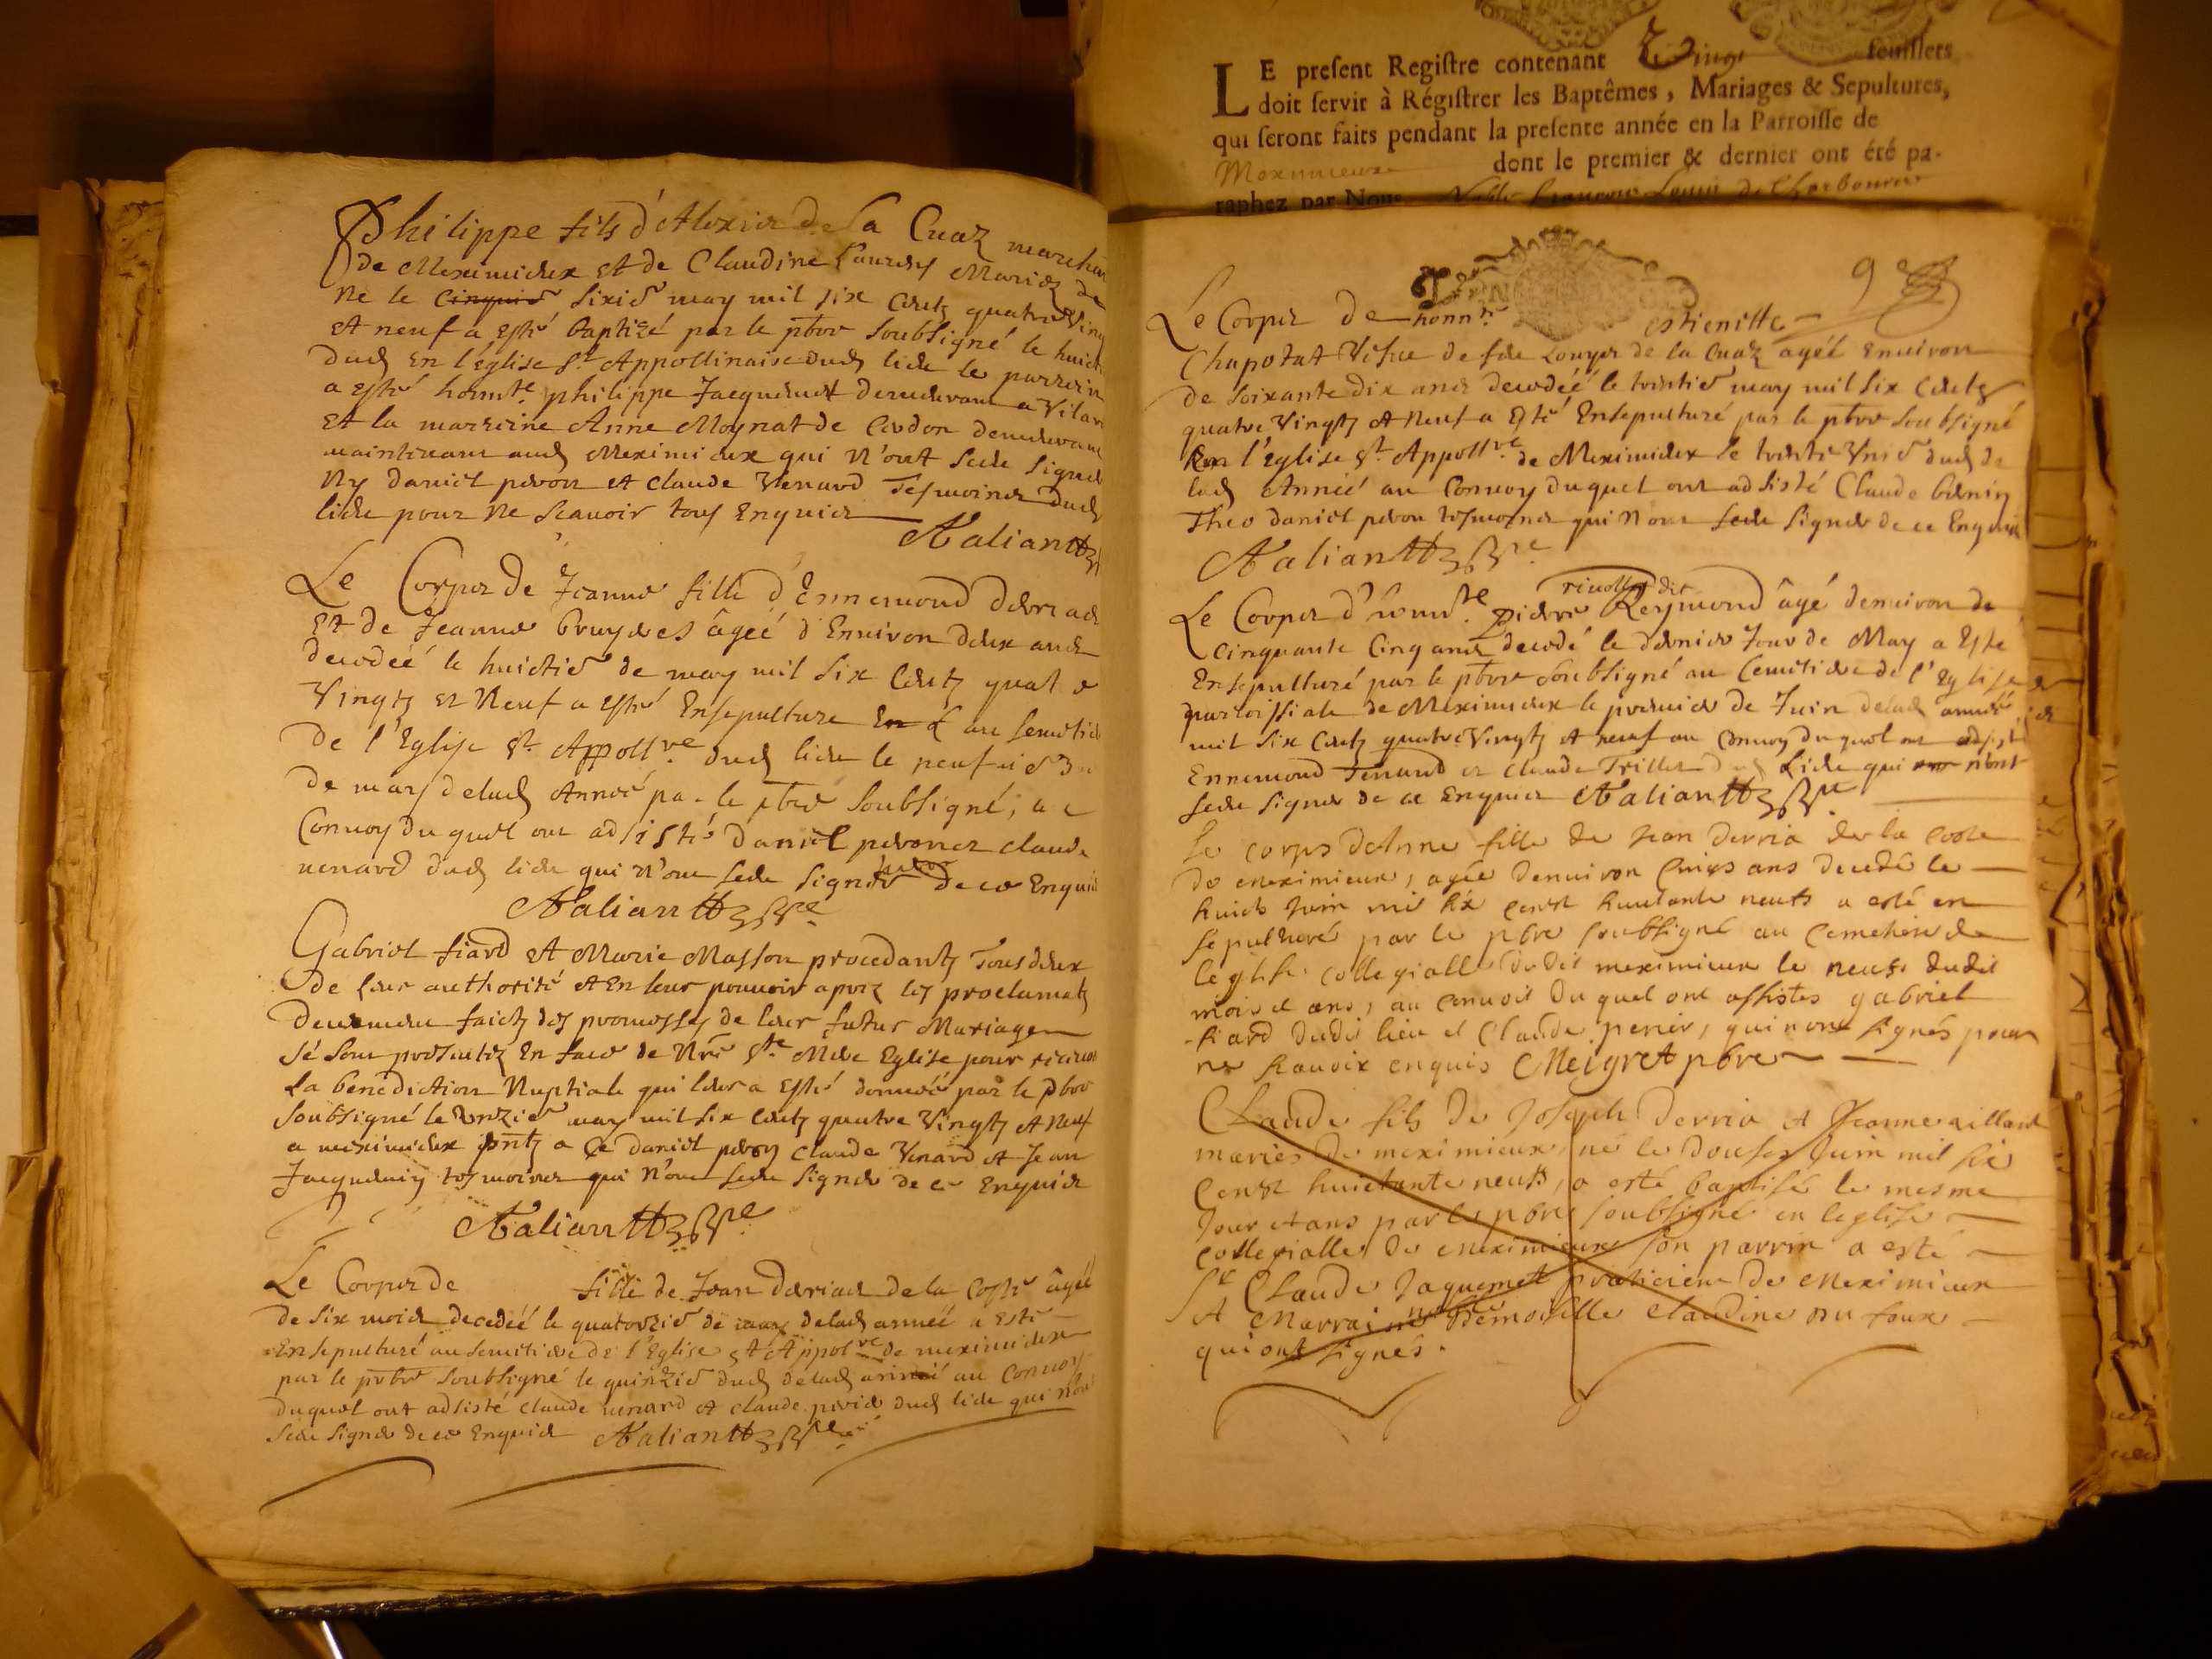 Philippe fils d'Alexis de la Cuaz marchan
de Meximieux et de Claudine Mariez de
Ne le cinquie sixie may mil six centz quatre Ving
et neuf a esté baptizé par le pbre soubsigné le huict
dud en l'eglise St Appollinaire dud lieu le parrein
a esté honnte philippe Jacquemet demeurant a Vilar
et la marreine Anne Moynat de Cerdon demeurant
maintenant aud Meximieux qui n'ont sceu signer
Ny daniel peron et claude Venard tesmoins dud
lieu pour ne scauoir tous Enquis
Aaliantt
Le Corps de Jeanne fille d'Ennemond derriaz
et de Jeanne bruyeres agée d'Enuiron deux ans
decedée le huictie de may mil six centz quat e
Vingtz et Neuf a esté Ensepulture En l au semetie
de l'Eglise St Appollre dud lieu le neufuie d
de may delad Année pa le pbre soubsigné, a
Conuoy du quel ont adsisté daniel peron et claude
uenard dud lieu qui n'ont sceu signer de ce Enquis
Aaliantt
Gabriel fiard et Marie Masson procedantz Tous deux
de leur authorité et En leur pouuoir aprez les proclamatz
deuemeu faictz des promesses de leur futur Mariage
sé sont presentez En face de Nre Ste Mere Eglise pour receuoi
La benediction Nuptiale qui leur a esté donnée par le pbre
soubsigné le unzie may mil six centz quatre Vingtz et Neuf
a meximieux pntz a ce daniel peron claude Venard et Jean
Jacquemin tesmoins qui n'ont sceu signer de ce Enquis
Aaliantt
Le Corps de fille de Jean deriaz de la Coste agée
de six mois decedée le quatorzie de may delad année a esté
Ensepulturé au semetiere de l'Eglise St Appolre de meximieux
par le prbre soubsigné le quinzie dud delad année au Conuoy
duquel ont adsisté claude uenard et claude perier dud lieu qui n'ont
sceu signer de ce Enquis Aaliantt
LE present Registre contenant Vingt feuillets
doit servir à Régistrer les Baptêmes, Mariages & Sepultures,
qui seront faits pendant la presente année en la Parroisse de
Meximieux dont le premier & dernier ont été pa-
raphez par Nous Noble françois Louis de
9
Le Corps de honnte estienette
Chapotat Vefue de feu Louys de la Cuaz agée Enuiron
de soixante dix ans decedée le trentie may mil six centz
quatre Vingtz et Neuf a Esté Ensepulturé par le pbre soubsigné
En l'eglise St Appollre de Meximieux le trente Vnie dud de
lad Année au Conuoy duquel ont adsisté Claude
Theo daniel peron tesmoins qui n'ont sceu signer de ce Enquis
Aaliantt
Le Corps d'honnte pierre riuollet dit Reymond agé denuiron de
cinquante Cinq ans decedé le dernier Jour de May a Esté
Ensepulturé par le pbre soubsigné au Cemitiere de l'Eglise
parroissiale de Meximieux le premier de Juin delad année
mil six centz quatre Vingtz et neuf au Conuoy duquel ont adsisté
Ennemond Tenard et claude Trillet d Lieu qui n'ont
sceu signer de ce Enquis Aaliantt
Le corps dAnne fille de Jean Derria de la coste
de meximieux, agée denuiron cinqs ans decedé le
huict Juin mil six censt huictante neufs a esté en
sepulturé par le pbre soubsigné au cemetiere de
leglise collegialle dudit meximieux le neufs dudit
mois et ans, au conuoit du quel ont assistes gabriel
fiard dudit lieu et Claude perier, qui nont signés pour
ne scauoir enquis Meigret pbre
Claude fils de Joseph Derria et Jeanne uilliard
mariés de meximieux, né le douses Juin mil six
censt huictante neufs, a esté baptisé le mesme
Jour et ans par le pbre soubsigné en leglise
collegialle de meximieux son parrin a esté
Sr Claude Jaquemet praticien de meximieux
et Marraine noble Demoiselle Claudine du four
qui ont signés.